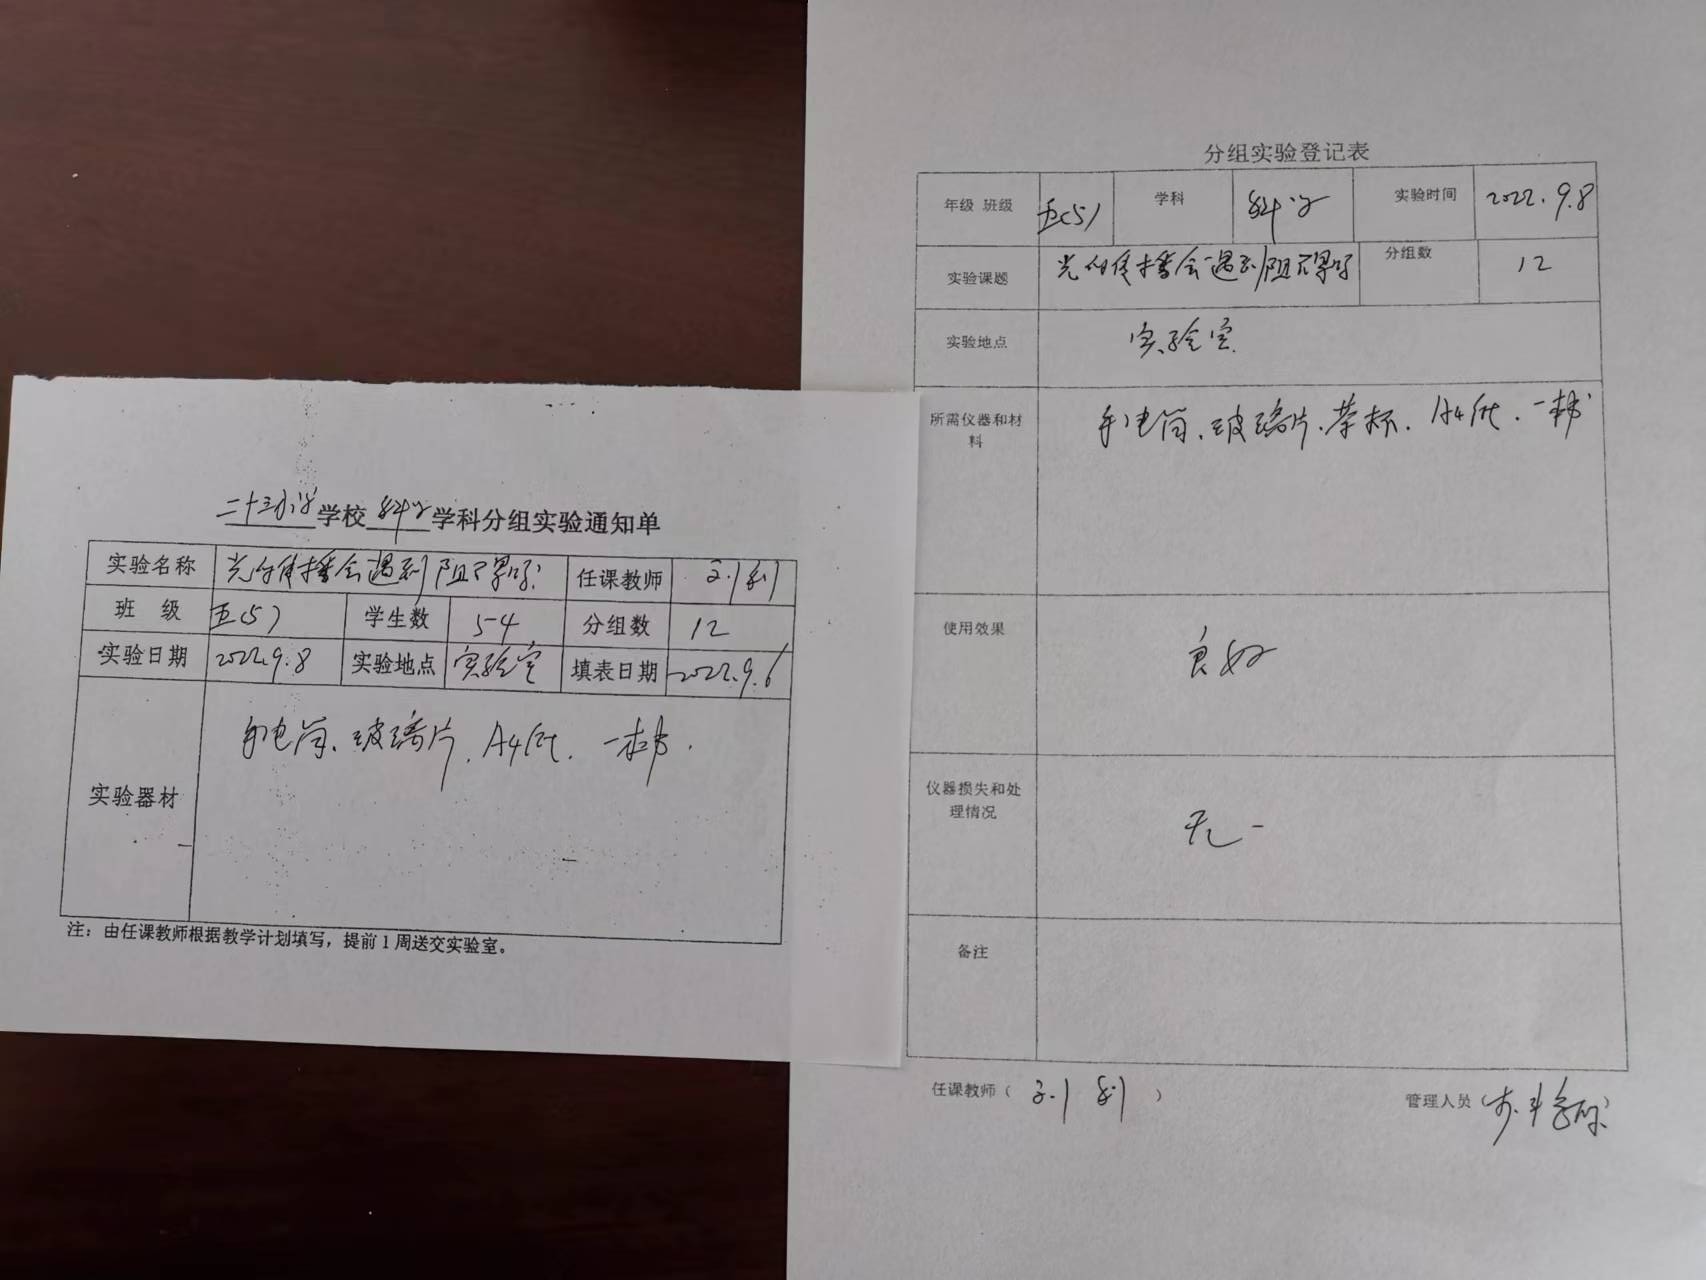 二十三小学学校科学学科分组实验通知单
实验名称 光的传播会遇到阻碍吗 任课教师
班 级 五(5) 学生数 54 分组数 12
实验日期 2022.9.8 实验地点 实验室 填表日期 2022.9.6
实验器材 手电筒、玻璃片、A4纸、一本书.
注：由任课教师根据教学计划填写，提前1周送交实验室。
分组实验登记表
年级 班级 五(5) 学科 科学 实验时间 2022.9.8
实验课题 光的传播会遇到阻碍吗 分组数 12
实验地点 实验室
所需仪器和材
料
手电筒、玻璃片、茶杯、A4纸、一本书
使用效果 良好
仪器损失和处
理情况
无
备注
任课教师（ ）
管理人员（ ）